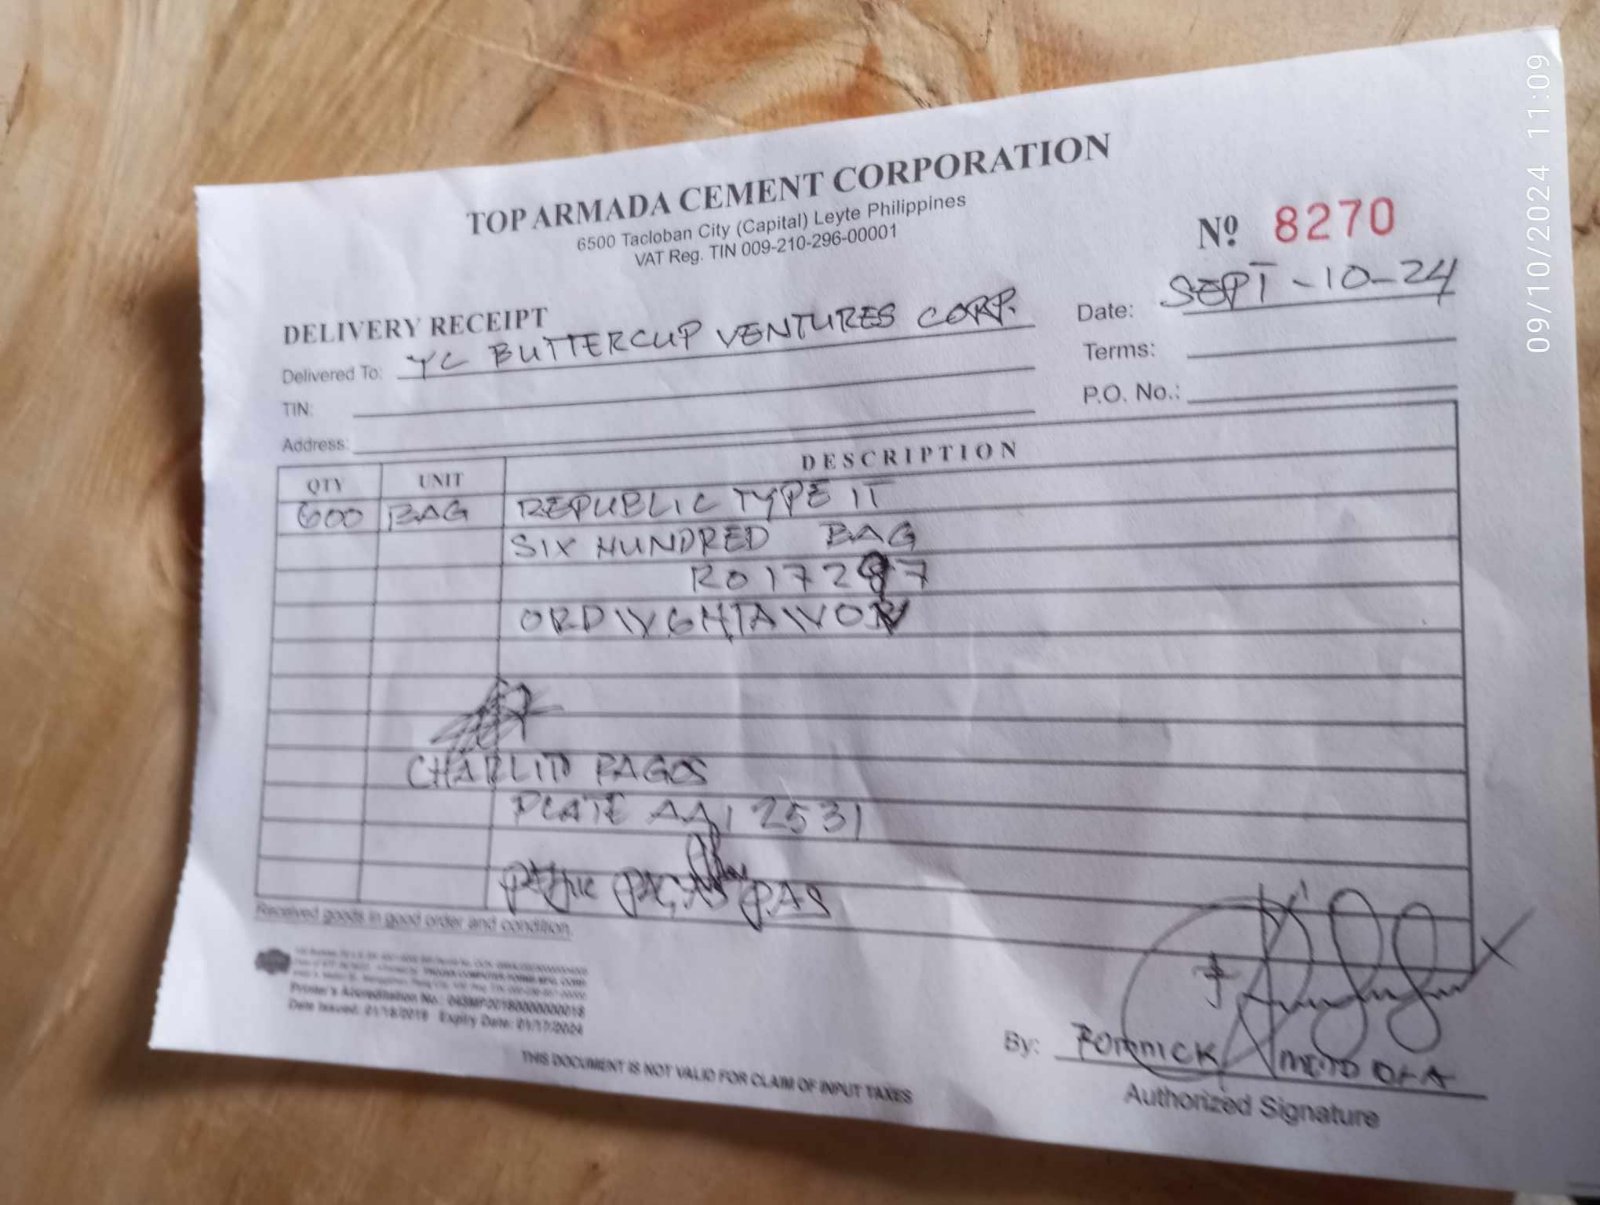 TOP ARMADA CEMENT CORPORATION
6500 Tacloban City (Capital) Leyte Philippines
VAT Reg. TIN 009-210-296-00001
Nº 8270
DELIVERY RECEIPT
Date: SEPT-10-24
Delivered To: YC BUTTERCUP VENTURES CORP.
Terms:
TIN:
P.O. No.:
Address:
QTY UNIT DESCRIPTION
600 BAG REPUBLIC TYPE IT
SIX HUNDRED BAG
RO17297
CHARLITO PAGOS
PLATE AAI 2531
Received goods in good order and condition
Printer's Accreditation No.: 043MP00180000000018
Date Issued: 01/18/2019 Expiry Date: 01/17/2024
THIS DOCUMENT IS NOT VALID FOR CLAIM OF INPUT TAXES
By: ROMNICK
Authorized Signature
09/10/2024 11:09